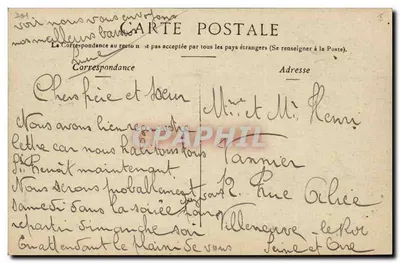 voir nous vous envoyons
nos meilleurs baisers
CARTE POSTALE
La Correspondance au recto n'est pas acceptée par tous les pays étrangers (Se renseigner à la Poste).
Correspondance
Adresse
Chers frère et sœur
Nous avons bien reçu votre
lettre car nous habitons tous
St Benoît maintenant
Nous serons probablement
samedi dans la soirée
repartir dimanche soir
En attendant le plaisir de vous
Mme et Mr Henri
Tannier
12 Rue Alice
Villeneuve-le-Roi
Seine et Oise
CPAPHIL